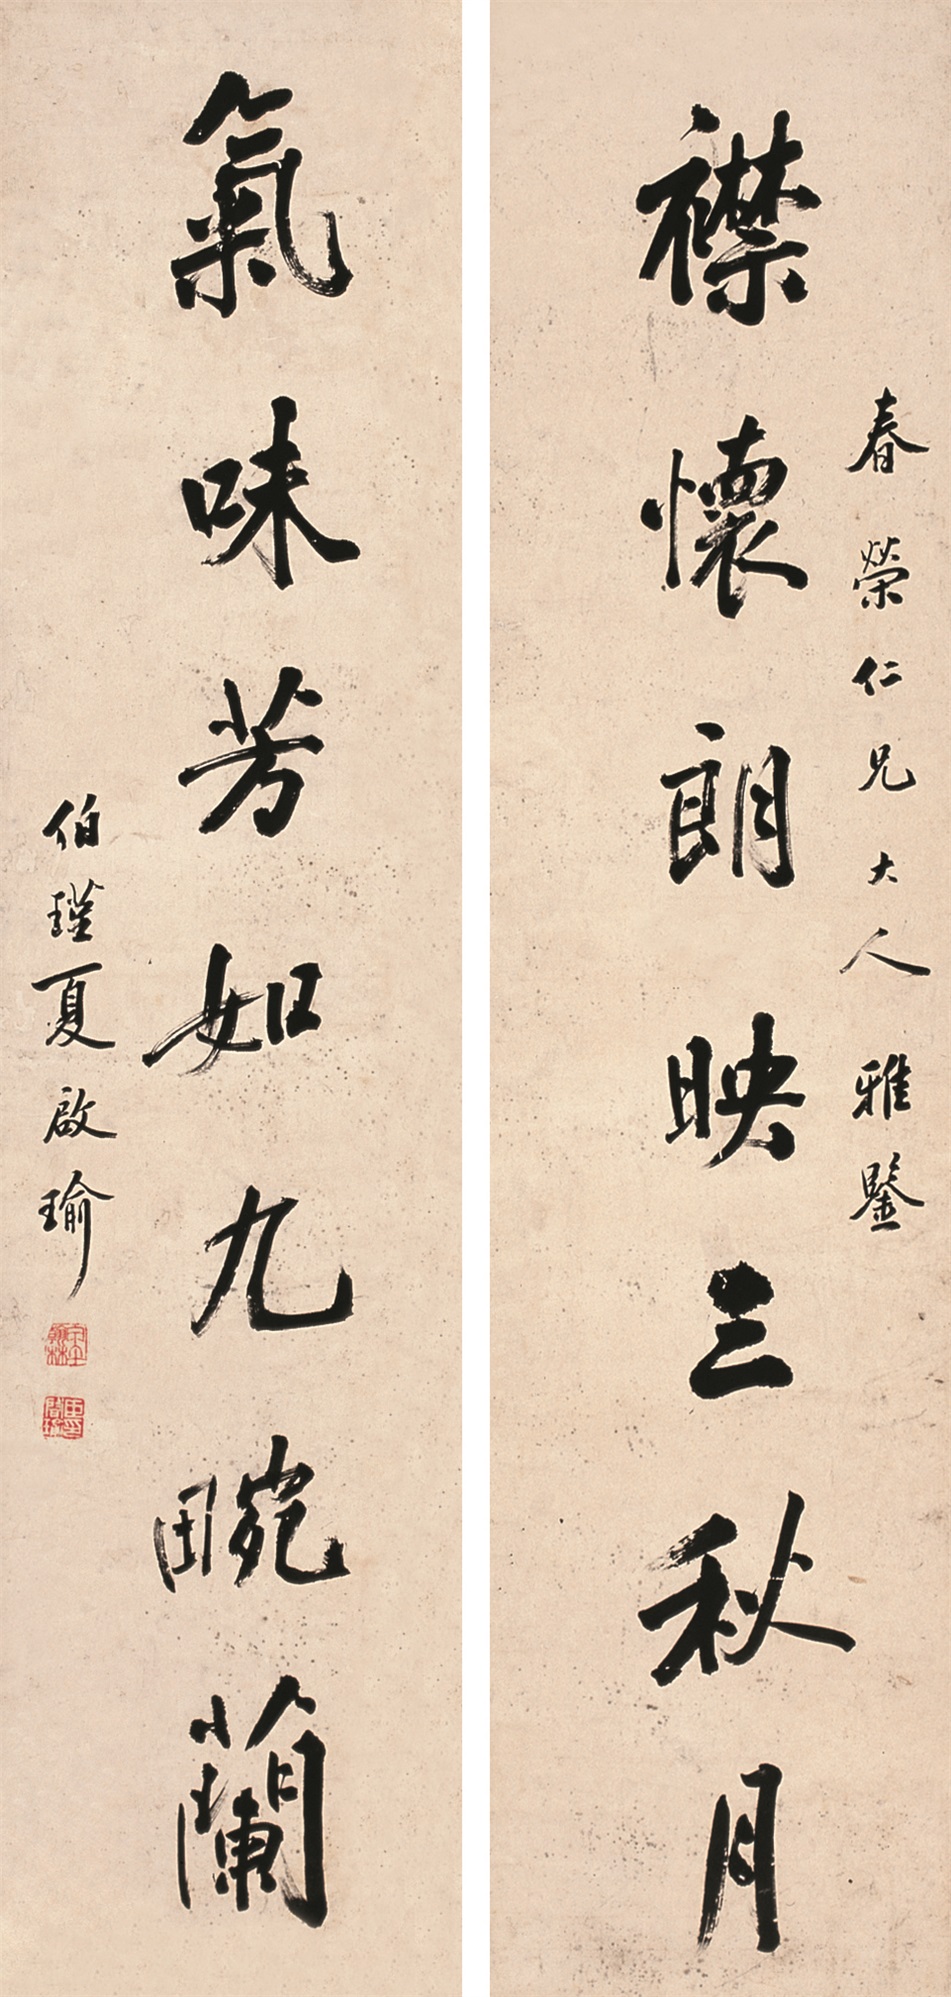 春榮仁兄大人雅鑒
襟懷朗映三秋月
氣味芳如九畹蘭
伯瑾夏啟瑜